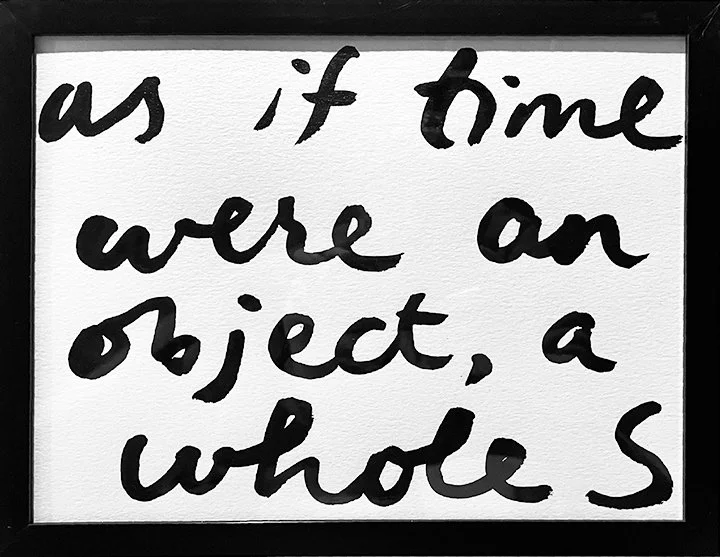 as if time
were an
object, a
whole S